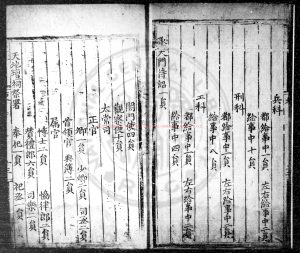 兵科
都給事中一員 左右給事中二員
給事中十員
刑科
都給事中一員 左右給事中二員
給事中八員
工科
都給事中一員 左右給事中二員
給事中四員
承天門待詔一員
閤門使四員
觀察使十員
太常司
正官
卿一員 少卿二員 司丞二員
首領官 典簿二員
屬官
博士一員 協律郎二員
贊禮郎六員 司樂二員
天地壇祠祭署
奉祀一員 祀丞二員